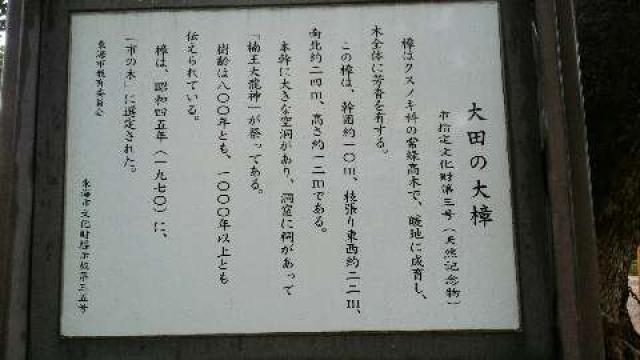 大田の大樟
市指定文化財第三号（天然記念物）
樟はクスノキ科の常緑高木で、暖地に成育し、
木全体に芳香を有する。
この樟は、幹囲約一〇ｍ、枝張り東西約二二ｍ、
南北約二四ｍ、高さ約二二ｍである。
本幹に大きな空洞があり、洞窟に祠があって
「楠王大龍神」が祭ってある。
樹齢は八〇〇年とも、一〇〇〇年以上とも
伝えられている。
樟は、昭和四五年（一九七〇）に、
「市の木」に選定された。
東海市教育委員会
東海市文化財標示板第三五号